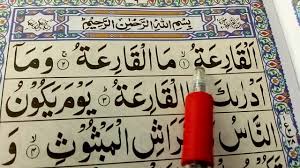 بِسْمِ اللّٰهِ الرَّحْمٰنِ الرَّحِيْمِ
اَلْقَارِعَةُ ۙ﴿۱﴾ مَا الْقَارِعَةُ ۚ﴿۲﴾ وَمَاۤ
اَدْرٰىكَ الْقَارِعَةُ ؕ﴿۳﴾ يَوْمَ يَكُوْنُ
النَّاسُ رَاشِ الْمَبْثُوْثِ ۙ﴿۴﴾